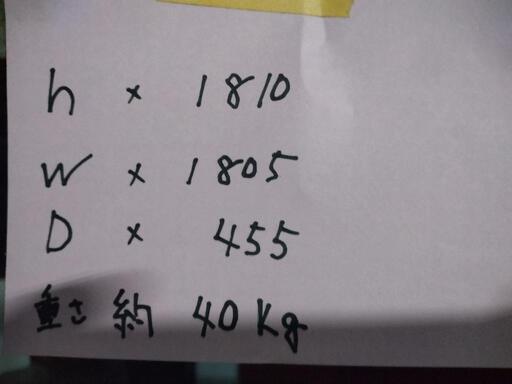 h × 1810
W × 1805
D × 455
重さ 約 40Kg